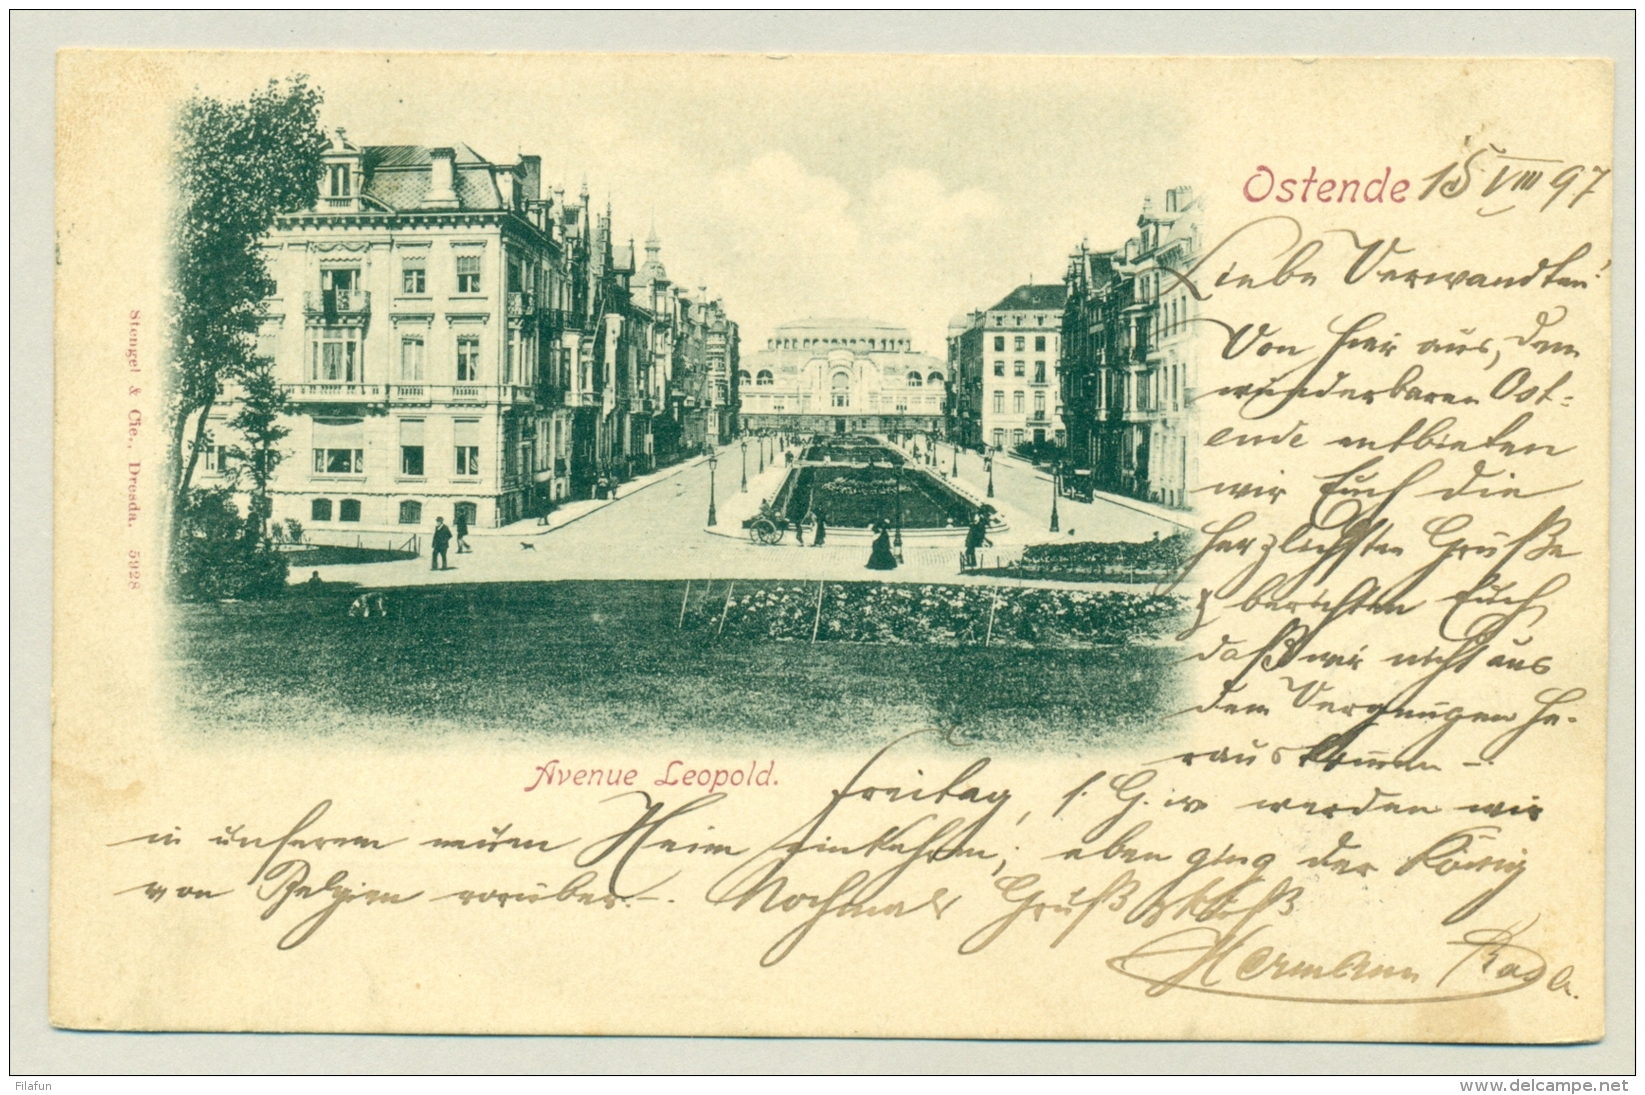 Ostende 15 VIII 97
Liebe Verwandten!
Von hier aus, dem
wunderbaren Ost-
ende entbieten
wir Euch die
herzlichsten Grüße
& berichten Euch,
daß wir nicht aus
dem Vergnügen he-
rauskommen –.
Freitag, s. G. w. werden wir
in unserem neuen Heim einkehren; eben ging der König
von Belgien vorüber. –. Nochmals Gruß & Kuß
Hermann
Avenue Leopold.
Stengel & Cie., Dresda. 5928
Filafun
www.delcampe.net